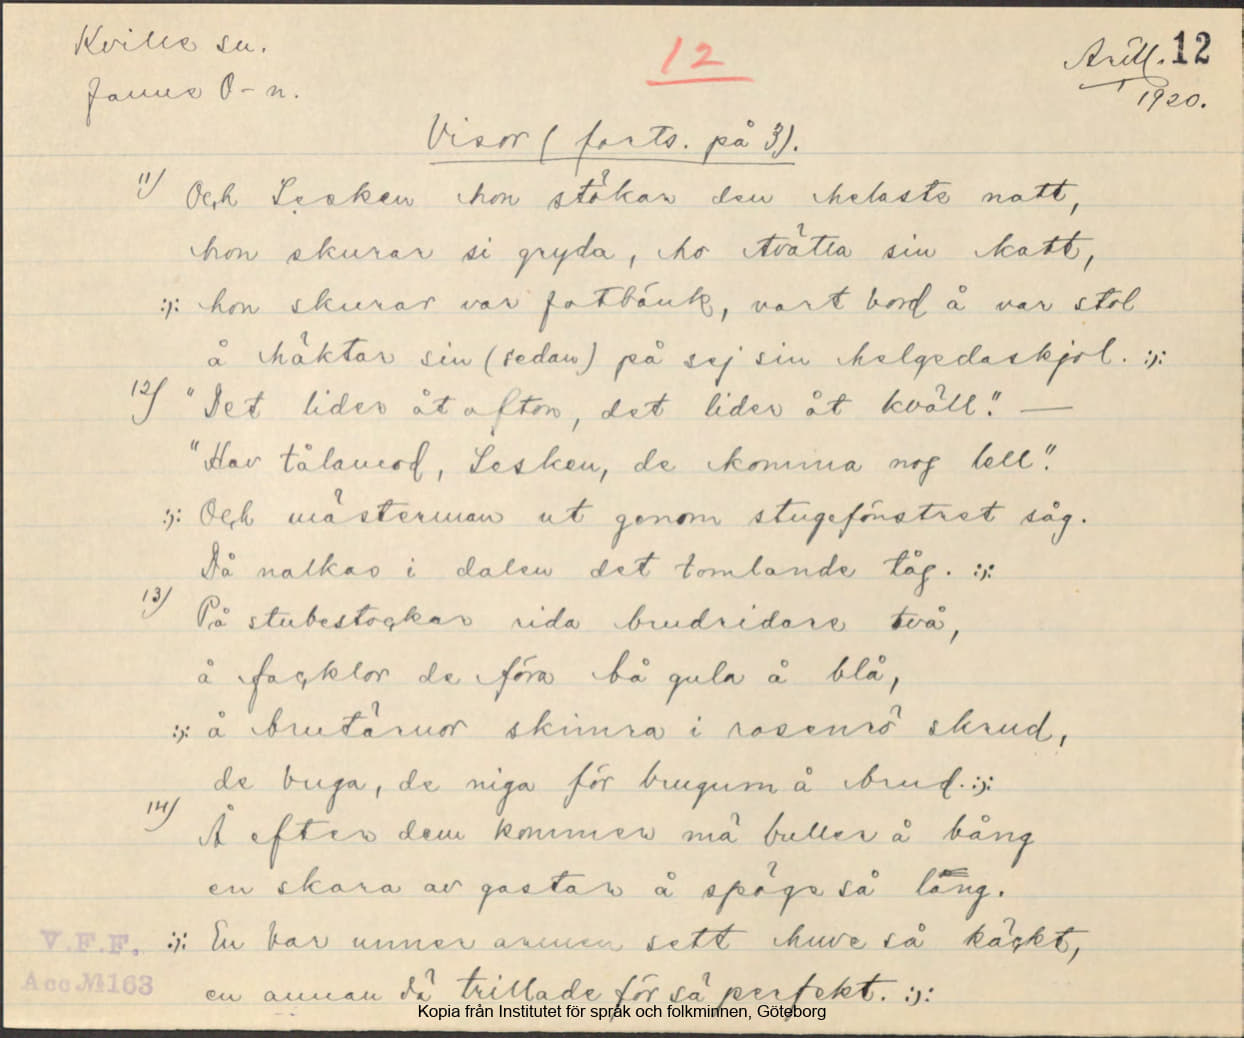 Kville sn.
Janne O-n.
12
Arill. 12
1920.
Visor (forts. på 3).
11) Och Lesken hon stökar den helaste natt,
hon skurar si gryda, ho tvätta sin katt,
:,: hon skurar var fotbänk, vart bord å var stol
å häktar sin (sedan) på sej sin helgedaskjol. :,:
12) "Det lider åt afton, det lider åt kväll". —
"Hav tålamod, Lesken, de komma nog lell".
:,: Och mästerman ut genom stugefönstret såg.
Då nalkas i dalen det tomlande tåg. :,:
13) På stubestockar rida brudridare två,
å facklor de föra bå gula å blå,
:,: å brutärnor skimra i rosenrö skrud,
de buga, de niga för brugum å brud. :,:
14) Å efter dem kommer mä buller å bång
en skara av gastar å spöge så lång.
:,: En bar unner armen sett huve så käckt,
en annan dä trillade för sä perfekt. :,:
V.F.F.
Acc M163
Kopia från Institutet för språk och folkminnen, Göteborg